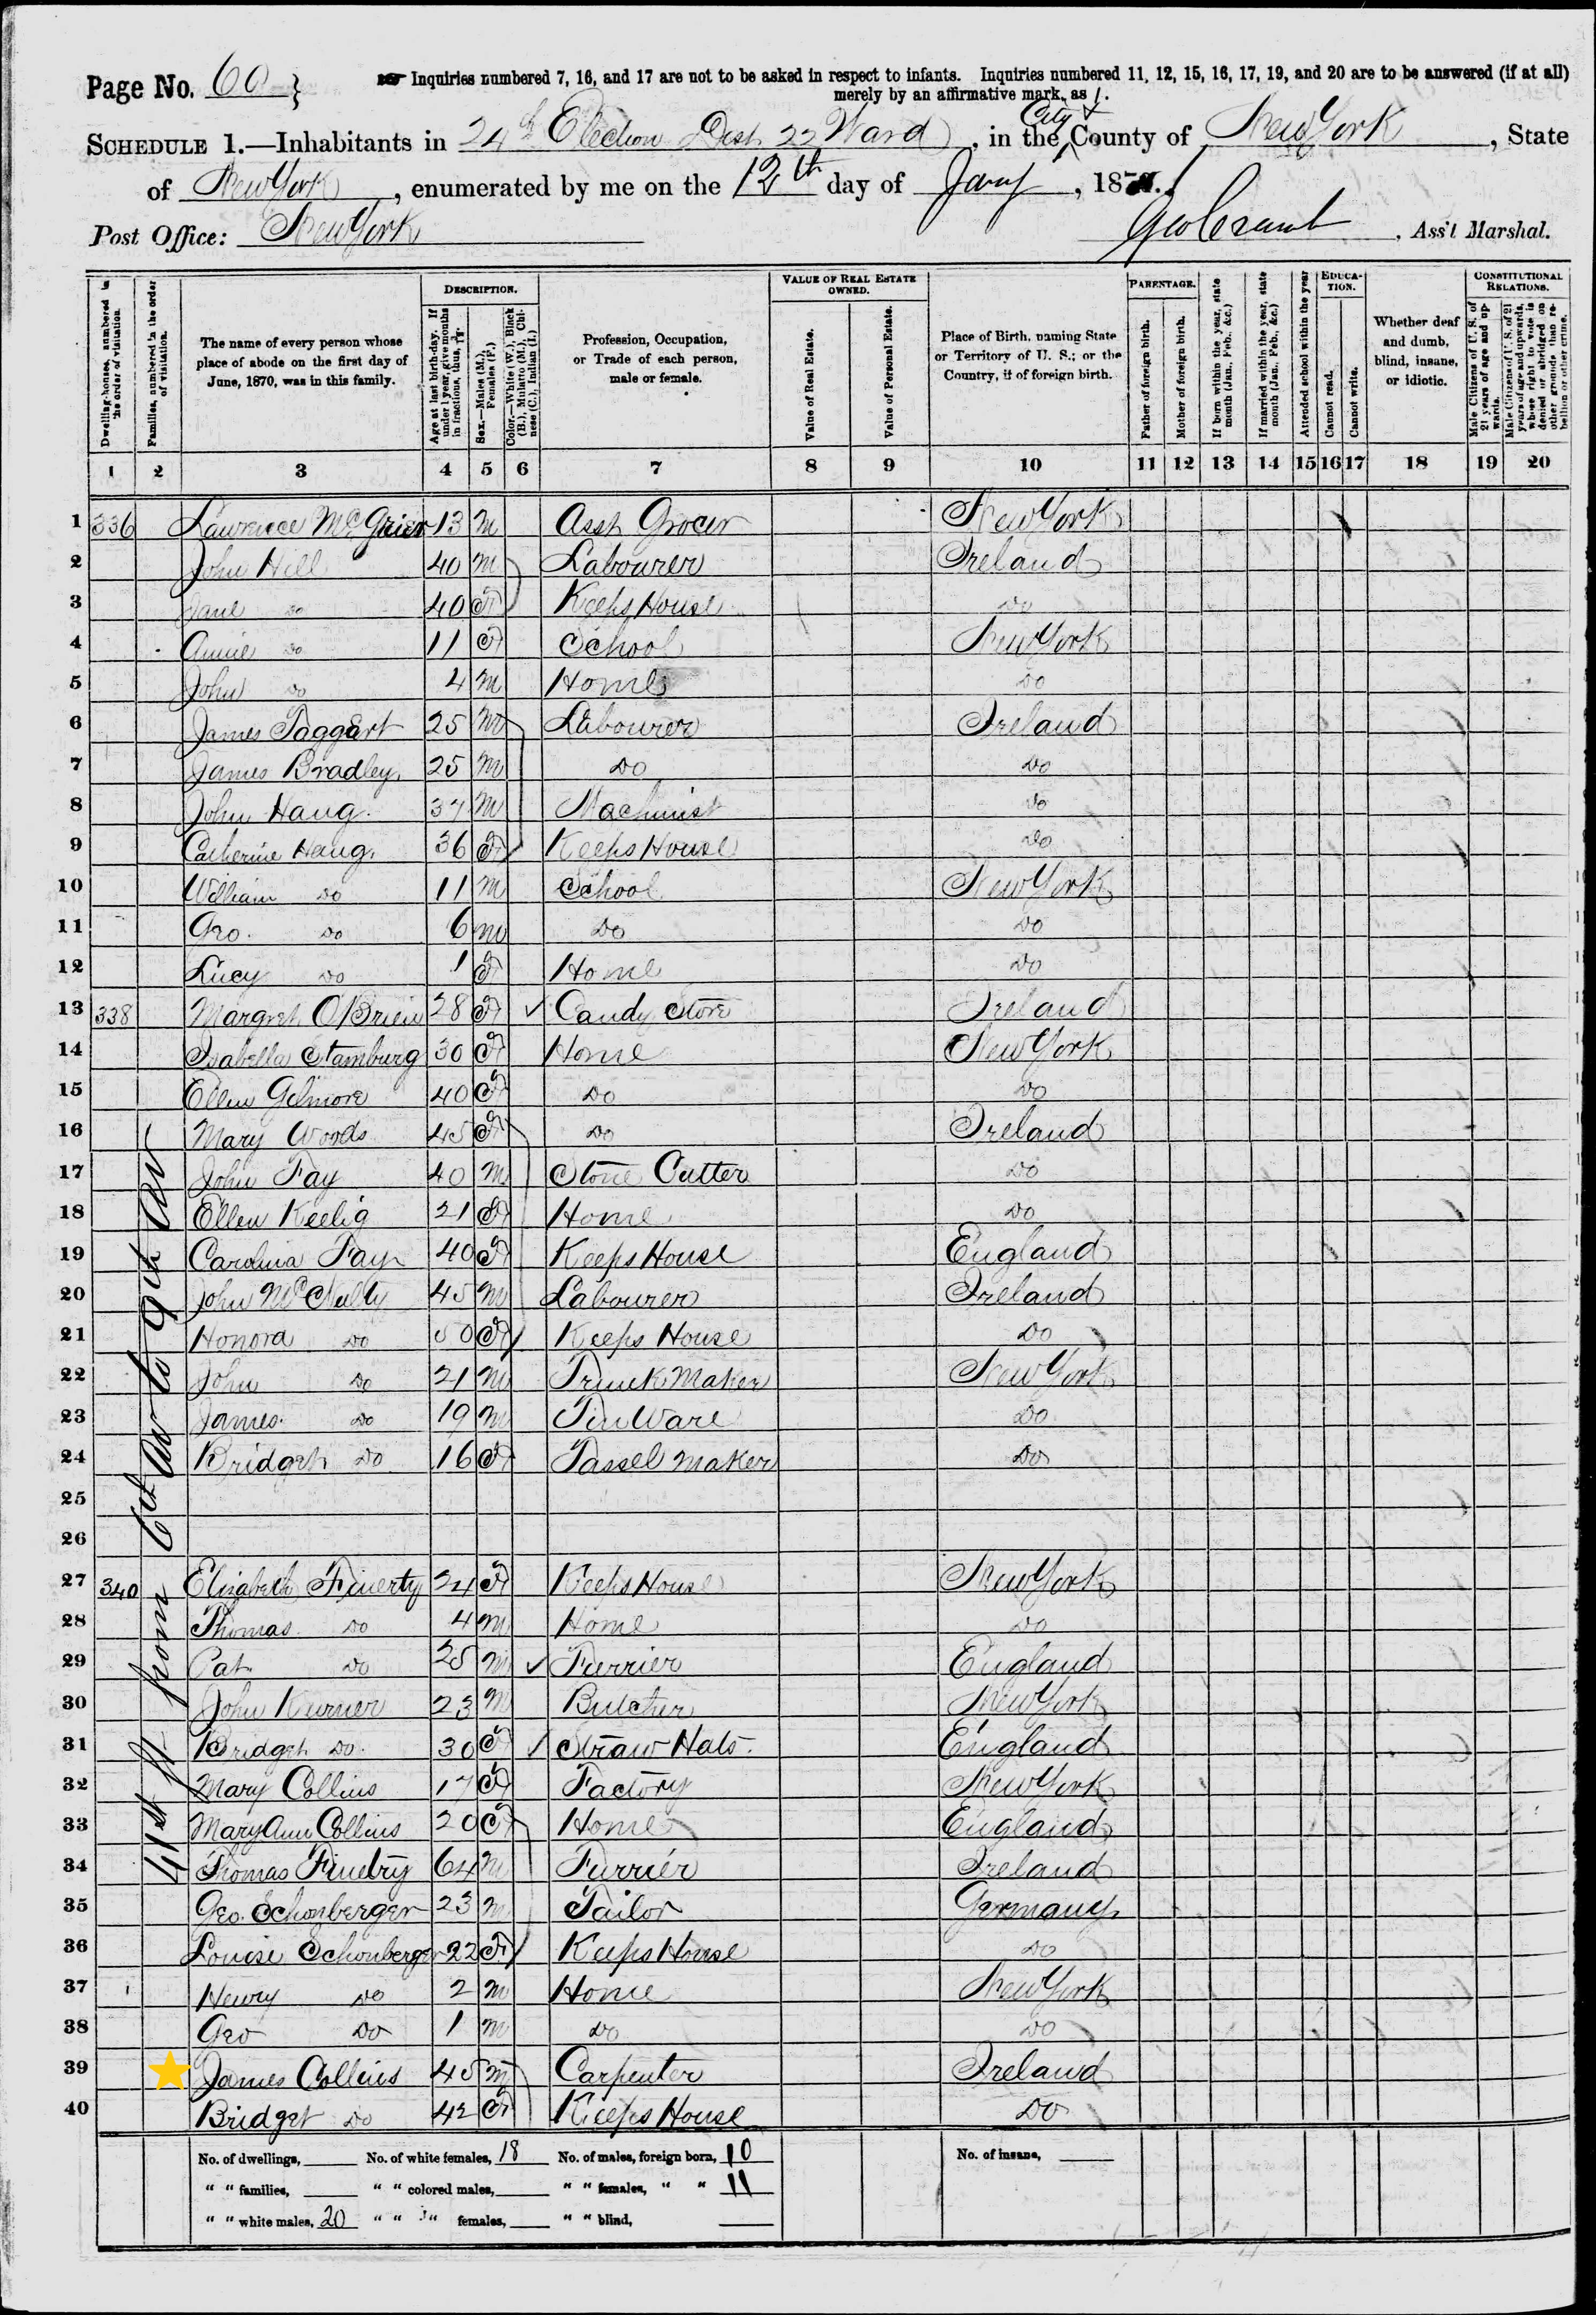 Page No. 60
Inquiries numbered 7, 16, and 17 are not to be asked in respect to infants. Inquiries numbered 11, 12, 15, 16, 17, 19, and 20 are to be answered (if at all)
merely by an affirmative mark, as /.
City &
SCHEDULE 1.—Inhabitants in 24th Election Dist 22 Ward, in the County of New York, State
of New York, enumerated by me on the 12th day of Jany, 1871.
Post Office: New York
Ass't Marshal.
DESCRIPTION.
VALUE OF REAL ESTATE OWNED.
PARENTAGE.
EDUCATION.
CONSTITUTIONAL RELATIONS.
Dwelling-houses, numbered in the order of visitation.
Families, numbered in the order of visitation.
The name of every person whose place of abode on the first day of June, 1870, was in this family.
Age at last birth-day. If under 1 year, give months in fractions, thus,
Sex.—Males (M.), Females (F.)
Color.—White (W.), Black (B.), Mulatto (M.), Chinese (C.), Indian (I.)
Profession, Occupation, or Trade of each person, male or female.
Value of Real Estate.
Value of Personal Estate.
Place of Birth, naming State or Territory of U. S.; or the Country, if of foreign birth.
Father of foreign birth.
Mother of foreign birth.
If born within the year, state month (Jan. Feb., &c.)
If married within the year, state month (Jan. Feb., &c.)
Attended school within the year
Cannot read.
Cannot write.
Whether deaf and dumb, blind, insane, or idiotic.
Male Citizens of U. S. of 21 years of age and upwards.
Male Citizens of U. S. of 21 years of age and upwards, whose right to vote is denied or abridged on other grounds than rebellion or other crime.
1 2 3 4 5 6 7 8 9 10 11 12 13 14 15 16 17 18 19 20
1 336 Lawrence McGrier 13 M Asst Grocer New York
2 John Hill 40 M Labourer Ireland
3 Jane Do 40 F Keeps House Do
4 Annie Do 11 F School New York
5 John Do 4 M Home Do
6 James Taggart 25 M Labourer Ireland
7 James Bradley 25 M Do Do
8 John Haug 37 M Machinist Do
9 Catherine Haug 36 F Keeps House Do
10 William Do 11 M School New York
11 Geo. Do 6 M Do Do
12 Lucy Do 1 F Home Do
13 338 Margret O'Brien 28 F Candy Store Ireland
14 Isabella Stamburg 30 F Home New York
15 Ellen Gilmore 40 F Do Do
16 Mary Woods 45 F Do Ireland
17 John Fay 40 M Stone Cutter Do
18 Ellen Keelig 21 F Home Do
19 Carolina Fay 40 F Keeps House England
20 John McNulty 45 M Labourer Ireland
21 Honora Do 50 F Keeps House Do
22 John Do 21 M Trunk Maker New York
23 James Do 19 M Tin Ware Do
24 Bridget Do 16 F Tassel Maker Do
25
26
27 340 Elizabeth Finerty 24 F Keeps House New York
28 Thomas Do 4 M Home Do
29 Pat Do 25 M Furrier England
30 John Kurner 23 M Butcher New York
31 Bridget Do 30 F Straw Hats England
32 Mary Collins 17 F Factory New York
33 Mary Ann Collins 20 F Home England
34 Thomas 64 M Furrier Ireland
35 Geo. Schonberger 23 M Tailor Germany
36 Louise Schonberger 22 F Keeps House Do
37 Henry Do 2 M Home New York
38 Geo Do 1 M Do Do
39 James Collins 45 M Carpenter Ireland
40 Bridget Do 42 F Keeps House Do
41st St from 6th Av to 9th Av
No. of dwellings, No. of white females, 18 No. of males, foreign born, 10 No. of insane,
" " families, " " colored males, " " females, " " 11
" " white males, 20 " " " females, " " blind,